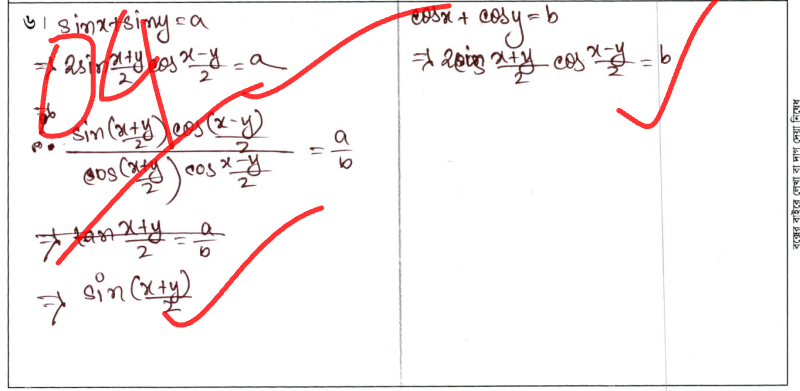 ৬। sinx+siny=a
⇒ 2sin x+y/2 cos x-y/2 = a
⇒
∴ sin(x+y/2) cos(x-y/2) / cos(x+y/2) cos x-y/2 = a/b
⇒ tan x+y/2 = a/b
⇒ sin(x+y)/2
cosx + cosy = b
⇒ 2cos x+y/2 cos x-y/2 = b
বক্সের বাইরে লেখা বা দাগ দেয়া নিষেধ